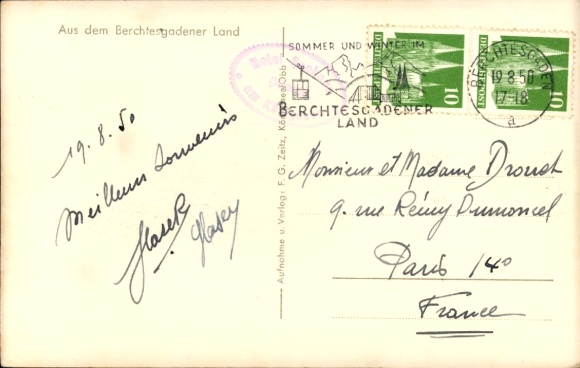 Aus dem Berchtesgadener Land
SOMMER UND WINTER IM
BERCHTESGADENER
LAND
BERCHTESGADEN
19.8.50
17-18
a
10
DEUTSCHE POST
10
DEUTSCHE POST
19.8.50
Meilleurs souvenirs
Monsieur et Madame Drouet
9. rue Rémy Dumoncel
Paris 14e
France
Aufnahme u. Verlag: F. G. Zeitz, Königssee/Obb.